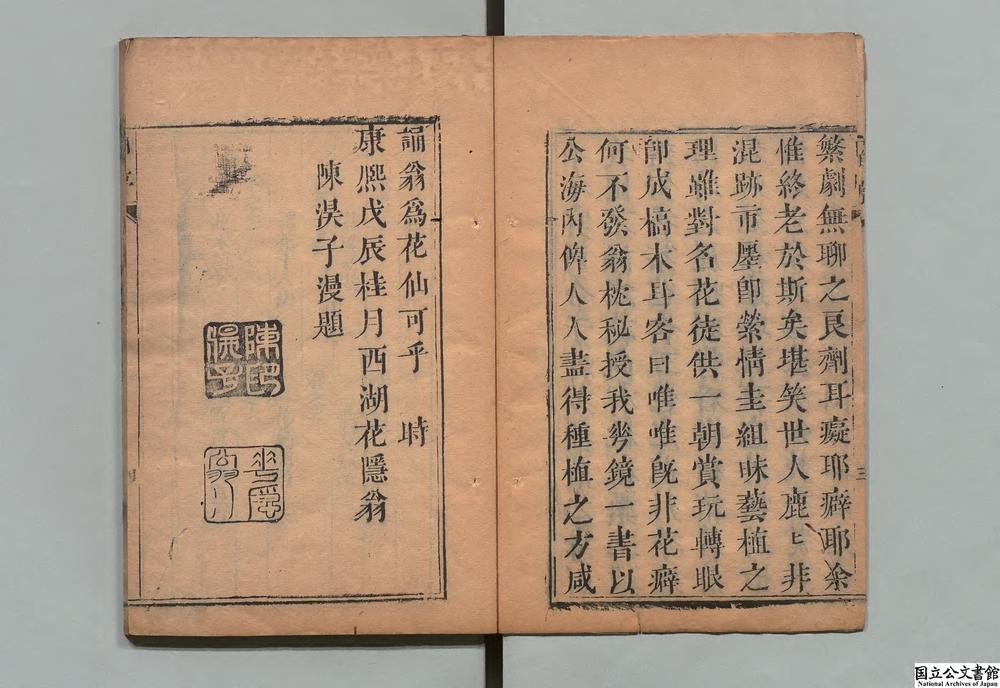 繁劇無聊之良劑耳癡耶癖耶余
惟終老於斯矣堪笑世人鹿匕非
混跡市廛卽縈情圭組昧藝植之
理雖對名花徒供一朝賞玩轉眼
卽成槁木耳客曰唯唯旣非花癖
何不發翁枕秘授我芲鏡一書以
公海內俾人人盡得種植之方咸
三
誦翁爲花仙可乎　時
康熙戊辰桂月西湖花隱翁
陳淏子漫題
陳印淏子
国立公文書館
National Archives of Japan